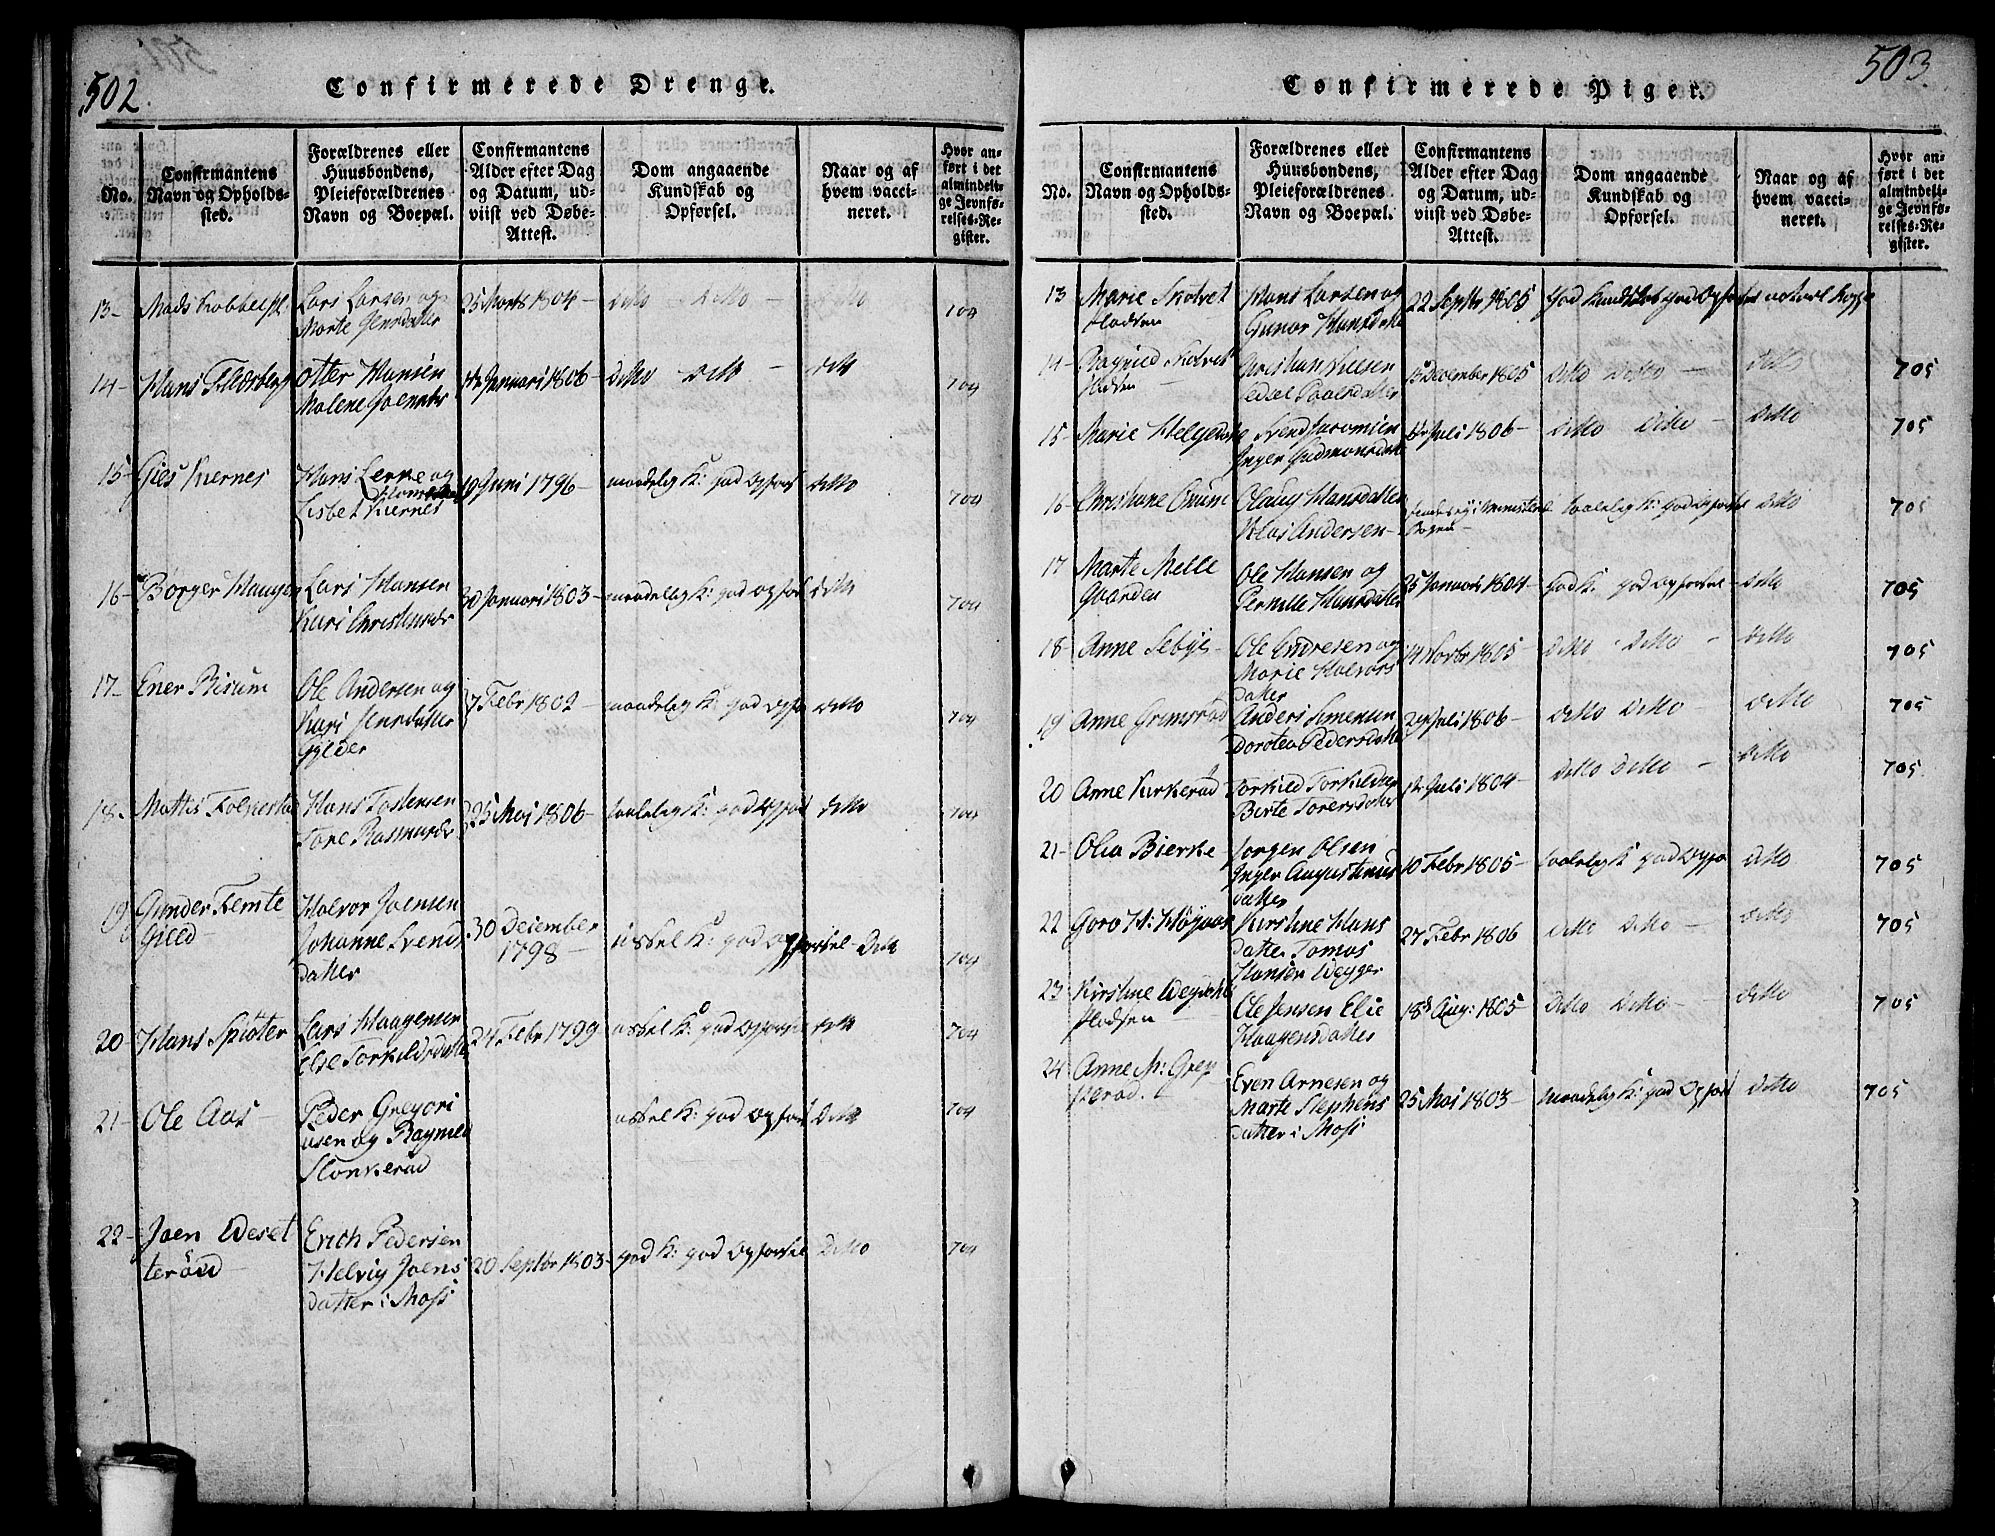 502.
Confirmerede Drenge.
No.
Confirmantens
Navn og Opholds-
sted.
Forældrenes eller
Huusbondens,
Pleieforældrenes
Navn og Boepæl.
Confirmantens
Alder efter Dag
og Datum, ud-
viist ved Døbe-
Attest.
Dom angaaende
Kundskab og
Opførsel.
Naar og af
hvem vacci-
neret.
Hvor an-
ført i det
almindeli-
ge Jevnfø-
relses-Re-
gister.
13- Mads
Lars Larsen og
Marte Jensdatter
25 Marts 1804- ditto ditto - ditto 704
14- Hans
Otter Hansen
Malene
Januari 1806- ditto ditto ditto 704
15- Gies Kiernes
Hans
Lisbet Kiernes
19 Juni 1796- maadelig K: god Opførs ditto 704
16- Børger Haugen
Lars Hansen
Kari
30 Januari 1803- maadelig K: god opførs ditto 704
17- Ener Bisum
Ole Andersen og
Kari Jensdatter
Gylder
7 Febr 1802- maadelig K: god Opfø ditto 704
18- Mattis
Hans Tostensen
Tore Rasmusdr
25 Mai 1806- taalelig K: god Opførs ditto 704
19 Gunder Femte
Gield-
Halvor Joensen
Johanne Svends
datter
30 Deiember
1798-
ussel K: god Opførsel - ditto 704
20 Hans Spioter
Lars Haagensen
Else Torkildsdatter
24 Febr 1799 ussel K: god Opførsel ditto 704
21- Ole Aas-
Peder Gregori
usen og Ragnild
Slonkerød
ussel K: god Opførs ditto 704
22- Joen Weset
terød-
Erich Pedersen
Helvig Joens
datter i Moss
20 Septbr 1803- god K: god Opførsel ditto 704
503.
Confirmerede Piger.
No.
Confirmantens
Navn og Opholds-
sted.
Forældrenes eller
Huusbondens,
Pleieforældrenes
Navn og Boepæl.
Confirmantens
Alder efter Dag
og Datum, ud-
viist ved Døbe-
Attest.
Dom angaaende
Kundskab og
Opførsel.
Naar og af
hvem vacci-
neret.
Hvor an-
ført i det
almindeli-
ge Jevnfø-
relses-Re-
gister.
13 Marie
Pladsen
Hans Larsen og
Gunor Hansdatter
22 Septbr 1805 god Kundskab god Opførsel naturl Kopper
14- Ragnild
Pladsen
Christian Nielsen
Sedsel Paalsdatter
December 1805 ditto ditto - ditto 705
15- Marie
Svend
Inger Gudmunsdatter
Juli 1806- ditto ditto - ditto 705
16- Christiane
Olaug Hansdatter
Klas Andersen-
taalelig K: god Opførsel ditto 705
17 Marte Melle
Gaarden
Ole Hansen og
Pernille Hansdatter
25 Januari 1804- god K. god opførsel - ditto 705
18- Anne Sebye-
Ole Andresen og
Marie Halvors
datter
14 Novbr 1805 ditto - ditto - ditto 705
19 Anne Grimsrød
Anders Simensen
Dorotea Pedersdatter
24 Juli 1806- ditto ditto - ditto 705
20 Anne Kirkerød
Torkild Torkildsen
Birte Torersdatter
Juli 1804- ditto ditto - ditto 705
21- Olia Bierke
Jørgen Olsen
Inger Augustinus
datter
10 Febr 1805- taalelig K god Opfø ditto 705
22 Goro
Kirstine Hans
datter Tomas
Hansen Weyger
27 Febr 1806 ditto ditto - ditto 705
23- Kirstine
Pladsen
Ole Jensen Elie
Haagensdatter
18d Aug: 1805 ditto ditto - ditto 705
24 Anne M: Grep
perød.
Even Arnesen og
Marte Stephens
datter i Moss
25 Mai 1803- maadelig K: god Opførs ditto 705